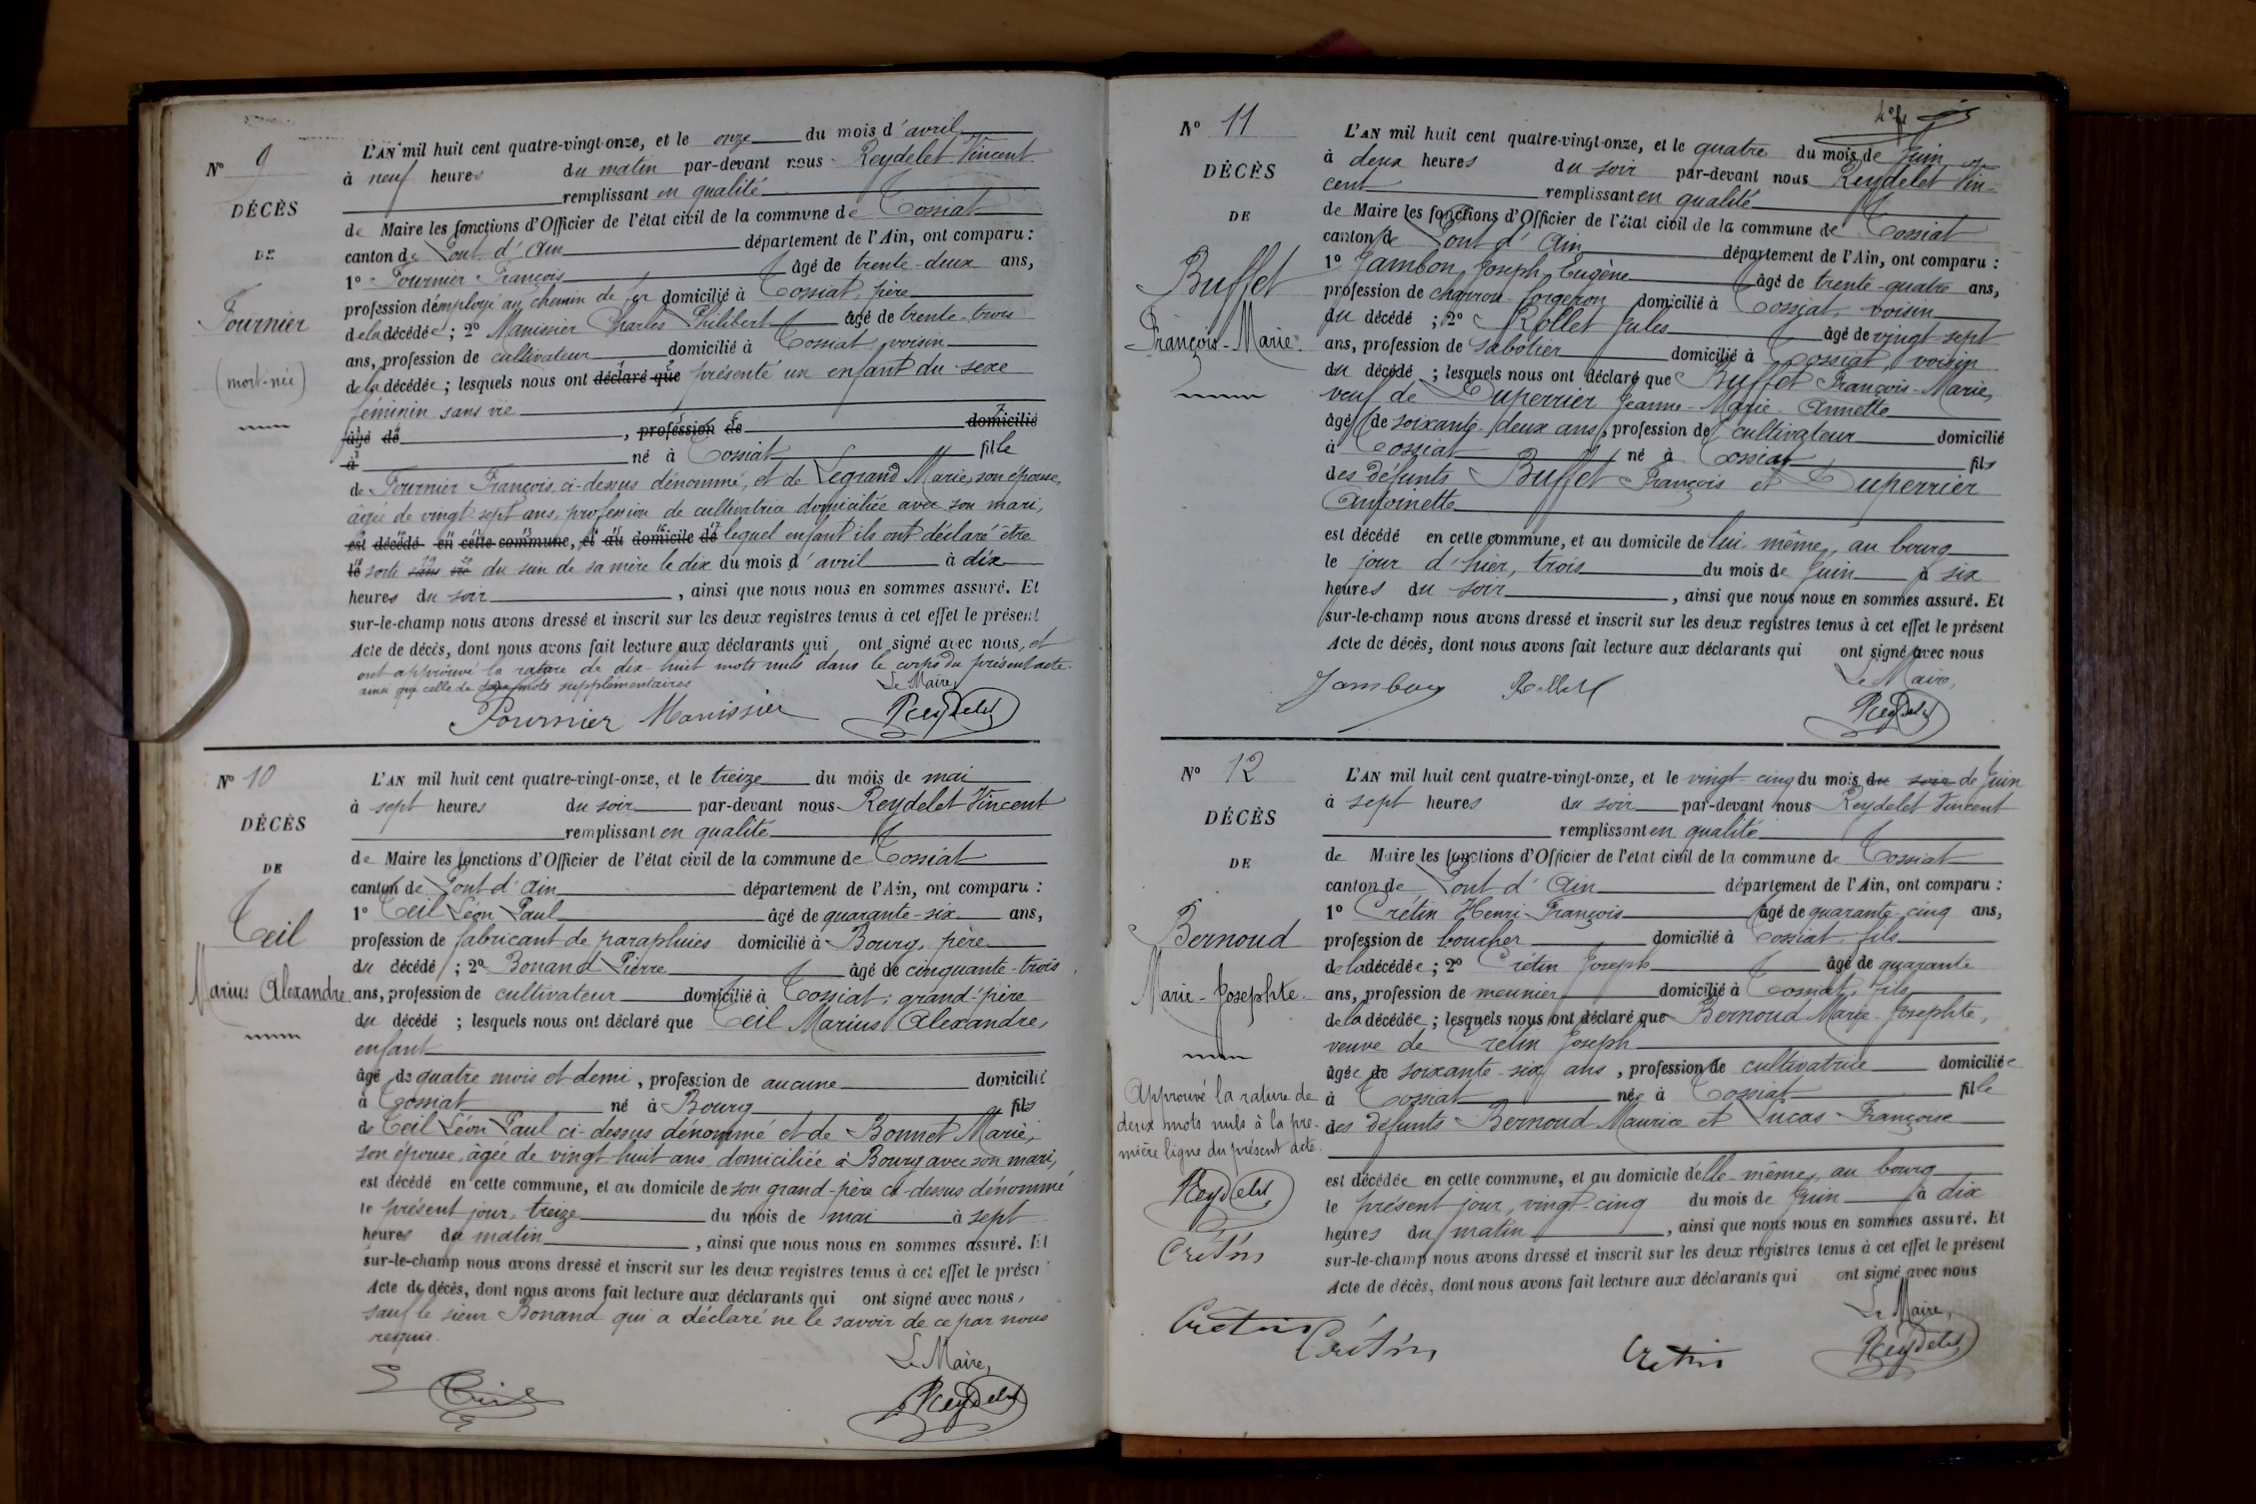 N° 9
DÉCÈS
DE
Fournier
(mort-née)
L'AN mil huit cent quatre-vingt-onze, et le onze du mois d'avril
à neuf heures du matin par-devant nous Reydelet Vincent
remplissant en qualité
de Maire les fonctions d'Officier de l'état civil de la commune de Tossiat
canton de Pont d'Ain département de l'Ain, ont comparu :
1° Fournier François âgé de trente-deux ans,
profession d'employé au chemin de fer domicilié à Tossiat, père
de la décédée ; 2° Manissier Charles Philibert âgé de trente-trois
ans, profession de cultivateur domicilié à Tossiat, voisin
de la décédée ; lesquels nous ont déclaré que présenté un enfant du sexe
féminin sans vie
âgé de , profession de domicilié
à né à Tossiat fille
de Fournier François, ci-dessus dénommé, et de Legrand Marie, son épouse,
âgée de vingt-sept ans, profession de cultivatrice domiciliée avec son mari,
est décédé en cette commune, et au domicile de lequel enfant ils ont déclaré être
le sorti sans vie du sein de sa mère le dix du mois d'avril à dix
heures du soir , ainsi que nous nous en sommes assuré. Et
sur-le-champ nous avons dressé et inscrit sur les deux registres tenus à cet effet le présent
Acte de décès, dont nous avons fait lecture aux déclarants qui ont signé avec nous, et
ont approuvé la rature de dix-huit mots nuls dans le corps du présent acte.
ainsi que celle de deux mots supplémentaires
Le Maire,
Fournier Manissier Reydelet
N° 10
DÉCÈS
DE
Teil
Marius Alexandre
L'AN mil huit cent quatre-vingt-onze, et le treize du mois de mai
à sept heures du soir par-devant nous Reydelet Vincent
remplissant en qualité
de Maire les fonctions d'Officier de l'état civil de la commune de Tossiat
canton de Pont d'Ain département de l'Ain, ont comparu :
1° Teil Léon Paul âgé de quarante-six ans,
profession de fabricant de parapluies domicilié à Bourg, père
du décédé ; 2° Bonand Pierre âgé de cinquante-trois
ans, profession de cultivateur domicilié à Tossiat, grand-père
du décédé ; lesquels nous ont déclaré que Teil Marius Alexandre,
enfant
âgé de quatre mois et demi, profession de aucune domicilié
à Tossiat né à Bourg fils
de Teil Léon Paul ci-dessus dénommé et de Bonnet Marie,
son épouse, âgée de vingt-huit ans, domiciliée à Bourg avec son mari,
est décédé en cette commune, et au domicile de son grand-père ci-dessus dénommé
le présent jour, treize du mois de mai à sept
heures du matin , ainsi que nous nous en sommes assuré. Et
sur-le-champ nous avons dressé et inscrit sur les deux registres tenus à cet effet le présen
Acte de décès, dont nous avons fait lecture aux déclarants qui ont signé avec nous,
sauf le sieur Bonand qui a déclaré ne le savoir de ce par nous
requis.
Le Maire,
Reydelet
N° 11
DÉCÈS
DE
Buffet
François-Marie
L'AN mil huit cent quatre-vingt-onze, et le quatre du mois de Juin
à deux heures du soir par-devant nous Reydelet Vin-
cent remplissant en qualité
de Maire les fonctions d'Officier de l'état civil de la commune de Tossiat
canton de Pont d'Ain département de l'Ain, ont comparu :
1° Jambon Joseph Eugène âgé de trente-quatre ans,
profession de charron-forgeron domicilié à Tossiat, voisin
du décédé ; 2° Rollet Jules âgé de vingt-sept
ans, profession de sabotier domicilié à Tossiat, voisin
du décédé ; lesquels nous ont déclaré que Buffet François-Marie,
veuf de Duperrier Jeanne-Marie-Annette
âgé de soixante-deux ans, profession de cultivateur domicilié
à Tossiat né à Tossiat fils
des défunts Buffet François et Duperrier
Antoinette
est décédé en cette commune, et au domicile de lui-même, au bourg
le jour d'hier, trois du mois de Juin à six
heures du soir , ainsi que nous nous en sommes assuré. Et
sur-le-champ nous avons dressé et inscrit sur les deux registres tenus à cet effet le présent
Acte de décès, dont nous avons fait lecture aux déclarants qui ont signé avec nous
Le Maire,
Jambon Rollet Reydelet
N° 12
DÉCÈS
DE
Bernoud
Marie-Josephte
Approuvé la rature de
deux mots nuls à la pre-
mière ligne du présent acte.
Reydelet
Crétin
L'AN mil huit cent quatre-vingt-onze, et le vingt-cinq du mois du soir de Juin
à sept heures du soir par-devant nous Reydelet Vincent
remplissant en qualité
de Maire les fonctions d'Officier de l'état civil de la commune de Tossiat
canton de Pont d'Ain département de l'Ain, ont comparu :
1° Crétin Henri-François âgé de quarante-cinq ans,
profession de boucher domicilié à Tossiat, fils
de la décédée ; 2° Crétin Joseph âgé de quarante
ans, profession de meunier domicilié à Tossiat, fils
de la décédée ; lesquels nous ont déclaré que Bernoud Marie-Josephte,
veuve de Crétin Joseph
âgée de soixante-six ans, profession de cultivatrice domiciliée
à Tossiat née à Tossiat fille
des défunts Bernoud Maurice et Lucas Françoise
est décédée en cette commune, et au domicile d'elle-même, au bourg
le présent jour, vingt-cinq du mois de Juin à dix
heures du matin , ainsi que nous nous en sommes assuré. Et
sur-le-champ nous avons dressé et inscrit sur les deux registres tenus à cet effet le présent
Acte de décès, dont nous avons fait lecture aux déclarants qui ont signé avec nous
Le Maire,
Crétin Crétin Crétin Reydelet